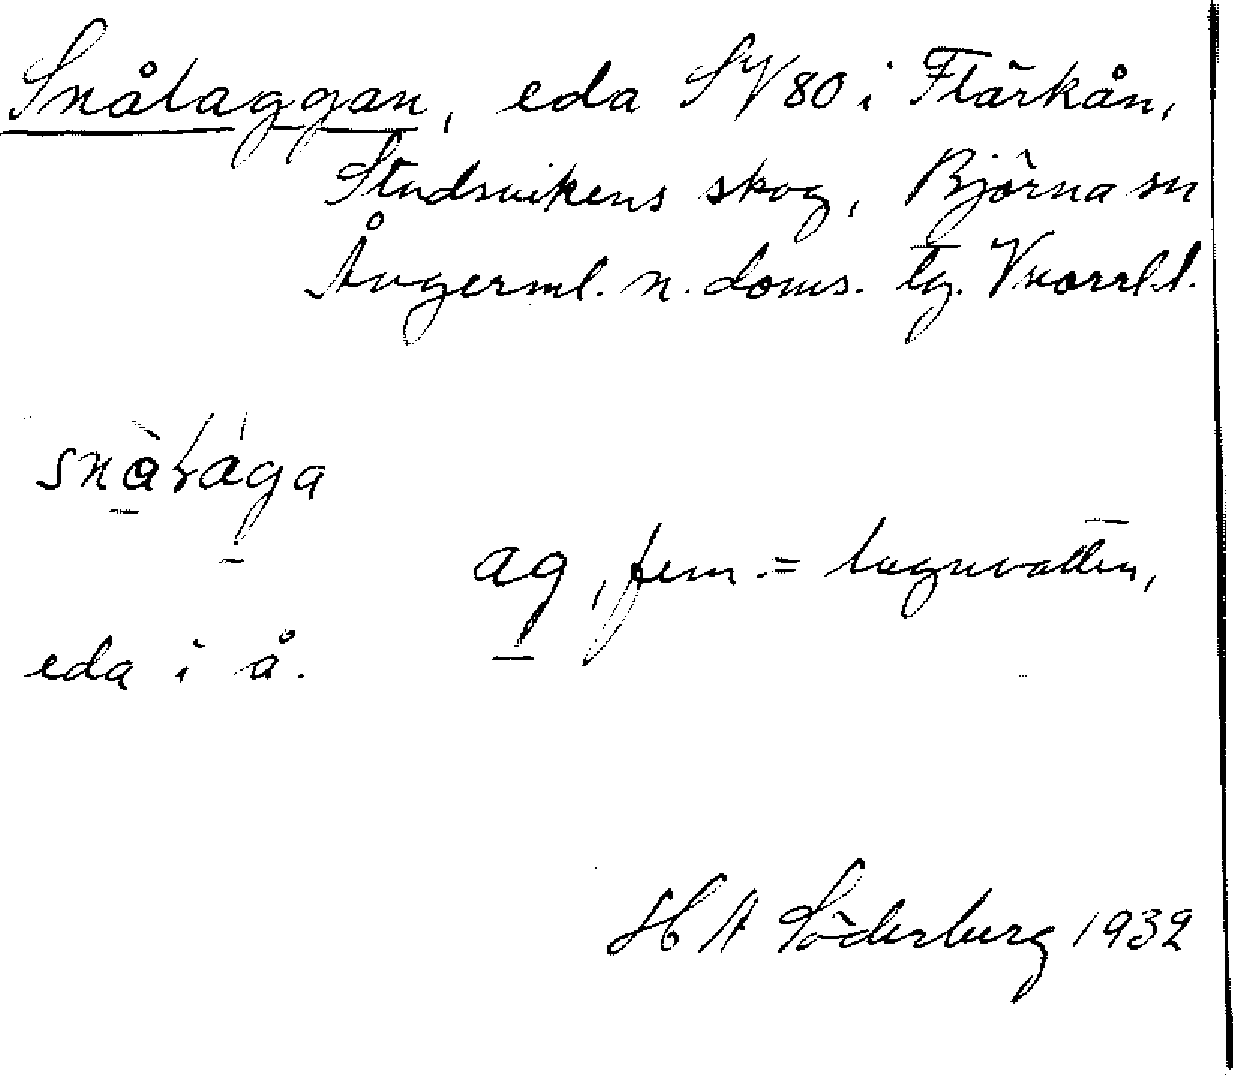 Snålaggan, eda SV 80 i Flärkån,
Studsvikens skog, Björna sn
Ångerml. n. doms. lg. Vnorrl. l.
snålåga
ag, fem. = lugnvatten,
eda i å.
H A Söderberg 1932